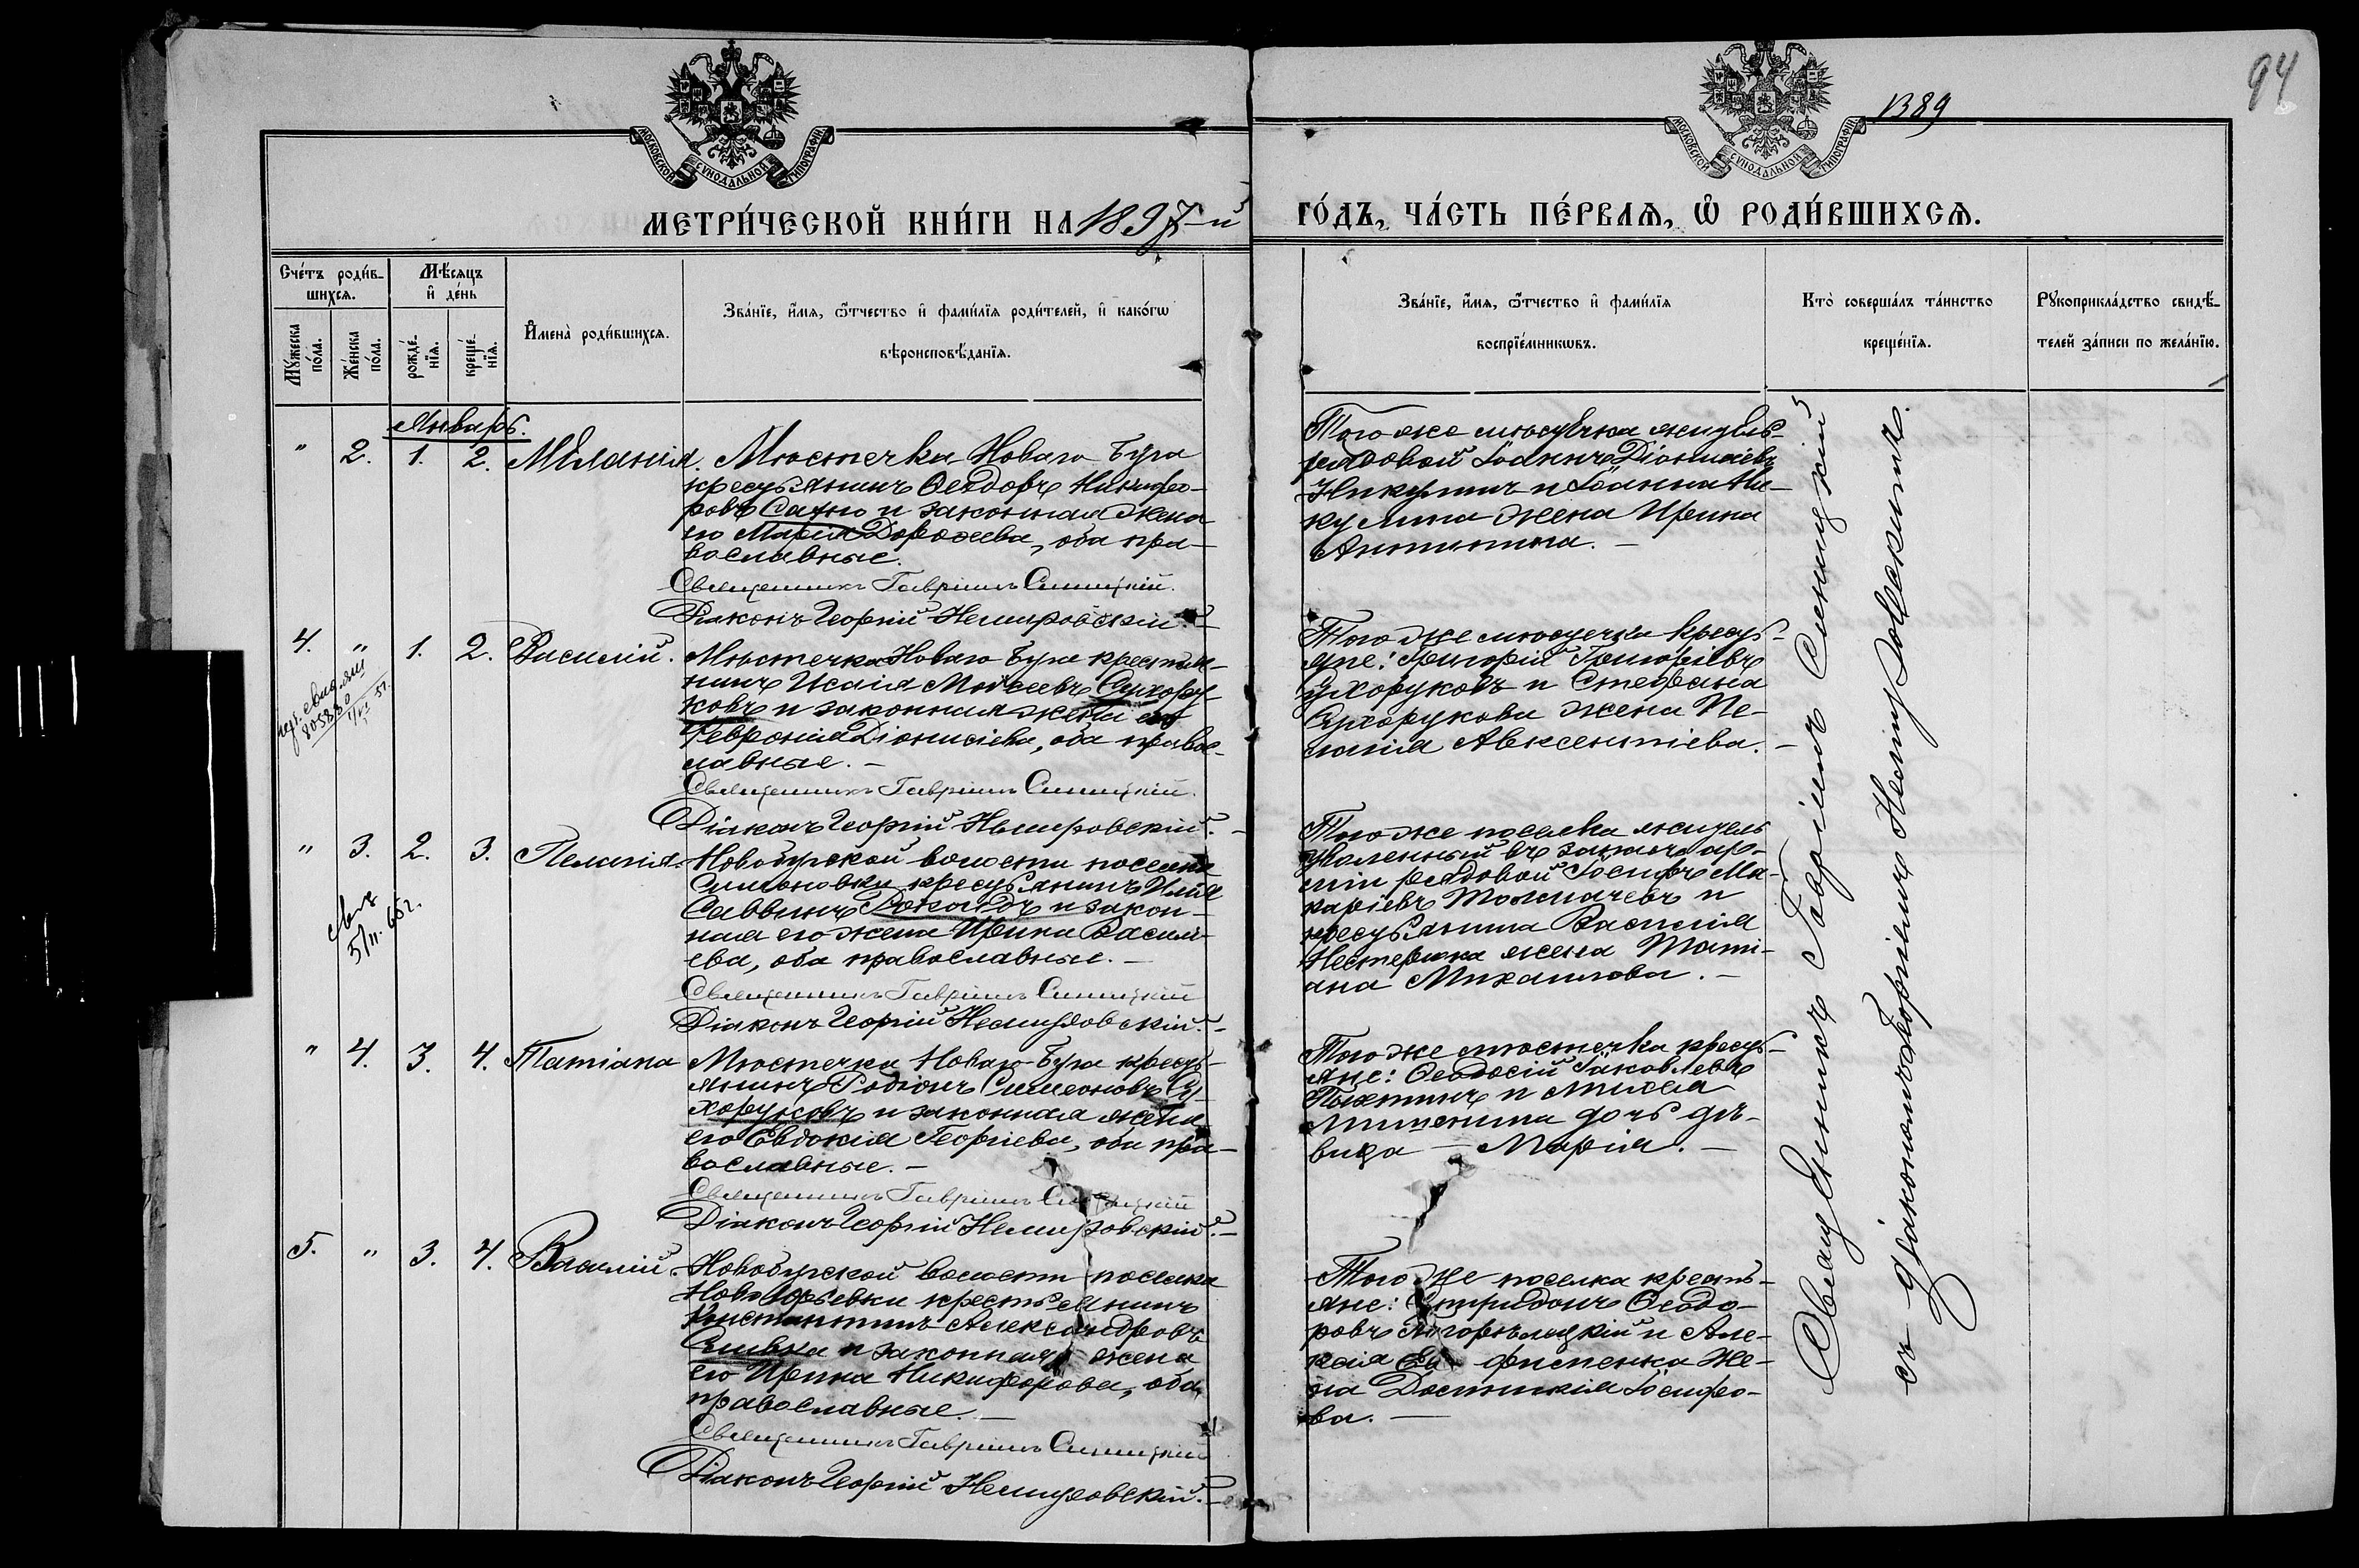 94
1389
МОСКОВСКОЙ СУНОДАЛЬНОЙ ТИПОГРАФІИ
МОСКОВСКОЙ СУНОДАЛЬНОЙ ТИПОГРАФІИ
МЕТРИ́ЧЕСКОЙ КНИ́ГИ НА 1897-й
ГО́ДЪ, ЧА́СТЬ ПЕ́РВАѦ, Ѡ҆ РОДИ́ВШИХСѦ.
Сче́тъ роди́в-
шихсѧ.
Мꙋ́жеска
по́ла.
Же́нска
по́ла.
Мѣ́сѧцъ
и҆ де́нь
рожде́-
нїѧ.
креще́-
нїѧ.
И҆мена̀ роди́вшихсѧ.
Зва́нїе, и҆́мѧ, ѻ҆́тчество и҆ фами́лїѧ роди́телей, и҆ како́гѡ
вѣроисповѣ́данїѧ.
Зва́нїе, и҆́мѧ, ѻ҆́тчество и҆ фами́лїѧ
воспрїе́мникѡвъ.
Кто̀ соверша́лъ та́инство
креще́нїѧ.
Рꙋкоприкла́дство свидѣ́-
телей за́писи по жела́нїю.
Январь.
" 2. 1. 2. Меланія.
Мѣстечка Новаго Буга
крестьянинъ Ѳеодоръ Никифо-
ровъ Сахно и законная жена
его Марія Дороѳеева, оба пра-
вославные.
Священникъ Гавріилъ Синицкій.
Діаконъ Георгій Немировскій.
Того же мѣстечка житель
рядовой Іоаннъ Діонисіевъ
Никулинъ и Іоанна Ни-
кулина жена Ирина
Антипина.
4. " 1. 2. Василій.
свид.
805880
Мѣстечка Новаго Буга крестья-
нинъ Исаія Моисеевъ Сухору-
ковъ и законная жена его
Февронія Діонисіева, оба право-
славные.
Священникъ Гавріилъ Синицкій.
Діаконъ Георгій Немировскій.
Того же мѣстечка кресть-
яне: Григорій Григоріевъ
Сухоруковъ и Стефана
Сухорукова жена Пе-
лагія Авксентіева.
" 3. 2. 3. Пелагія.
5/II. 65г.
Новобугской волости поселка
Симоновки крестьянинъ Илія
Саввинъ и закон-
ная его жена Ирина Василі-
ева, оба православные.
Священникъ Гавріилъ Синицкій
Діаконъ Георгій Немировскій.
Того же поселка житель
уволенный въ запасъ ар-
міи рядовой Іосифъ Ма-
каріевъ Толмачевъ и
крестьянина Василія
Нестерюка жена Таті-
ана Михаилова.
" 4. 3. 4. Татіана
Мѣстечка Новаго Буга кресть-
янинъ Родіонъ Симеоновъ Су-
хоруковъ и законная жена
его Евдокія Георгіева, оба пра-
вославные.
Священникъ Гавріилъ Синицкій
Діаконъ Георгій Немировскій.
Того же мѣстечка кресть-
яне: Ѳеодосій Іаковлевъ
и
дочь дѣ-
вица Марія.
5. " 3. 4. Василій.
Новобугской волости поселка
крестьянинъ
Константинъ Александровъ
Сливка и законная жена
его Ирина Никифорова, оба
православные.
Священникъ Гавріилъ Синицкій
Діаконъ Георгій Немировскій.
Того же поселка кресть-
яне: Спиридонъ Ѳеодо-
ровъ и Але-
ксія же-
на Іосифо-
ва.
Священникъ Гавріилъ Синицкій
съ діакономъ Георгіемъ Немировскимъ.